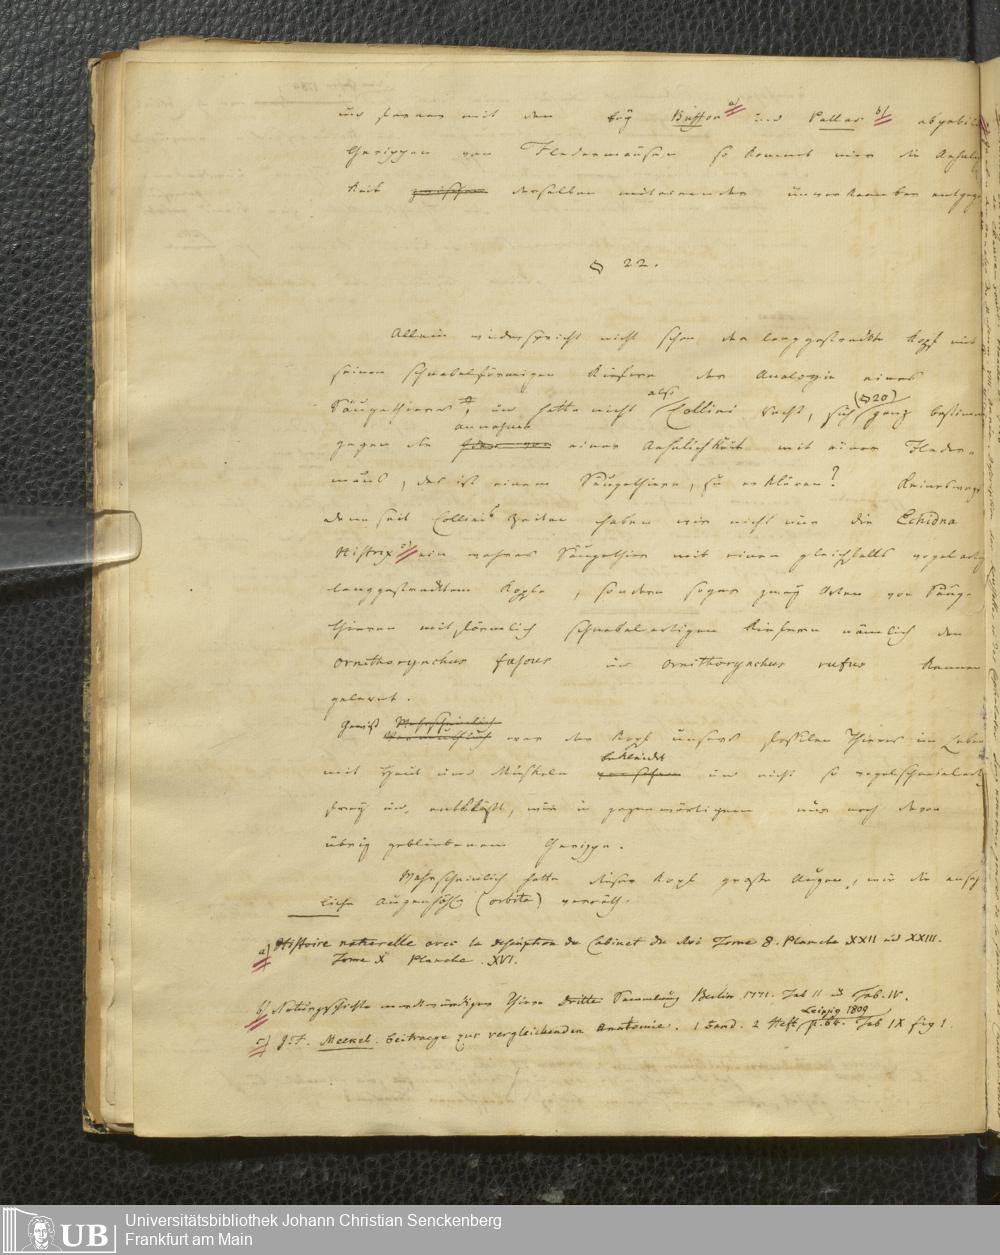 und ferner mit den bey Buffon a) und Pallas b) abgebil
Gerippen von Fledermäusen so kommt mir die Aehnli
keit zwischen derselben miteinander unverkennbar entgeg
§ 22.
Allein widerspricht nicht schon der langgestreckte Kopf mit
seinen schnabelförmigen Kiefern der Analogie eines
Säugethieres, und hatte nicht also Collini Recht, sich (§ 20) ganz bestimmt
gegen die annahme einer Aehnlichkeit mit einer Fleder-
maus, das ist einem Säugethiere, zu erklären? Keineswegs
denn seit Collinis Zeiten haben wir nicht nur die Echidna
Histrix c) ein wahres Säugethier mit einem gleichfalls vogelartig
langgestrecktem Kopfe, sondern sogar zwey Arten von Säug-
thieren mit förmlich schnabelartigen Kiefern nämlich den
Ornithorynchus fuscus und Ornithorynchus rufus kennen
gelernt.
Gewiß Wahrscheinlich
Vermuthlich war der Kopf unsers fossilen Thieres im Leben
mit Haut und Muskeln bekleidet versehen und nicht so vogelschnabelartig
frey und entblößt, wie in gegenwärtigem nur noch davon
übrig gebliebenem Gerippe.
Wahrscheinlich hatte dieser Kopf große Augen, wie die anseh
liche Augenhöhle (orbita) verräth.
a) Histoire naturelle avec la description du Cabinet du Roi Tome 8. Planche XXII und XXIII.
Tome X Planche XVI.
b) Naturgeschichte merkwürdiger Thiere Dritte Sammlung Berlin 1771. Tab II u Tab. IV.
c) J. F. Meckel. Beitraege zur vergleichenden Anatomie. 1 Band. 2 Heft Leipzig 1809 Tab IX fig 1.
UB
Universitätsbibliothek Johann Christian Senckenberg
Frankfurt am Main